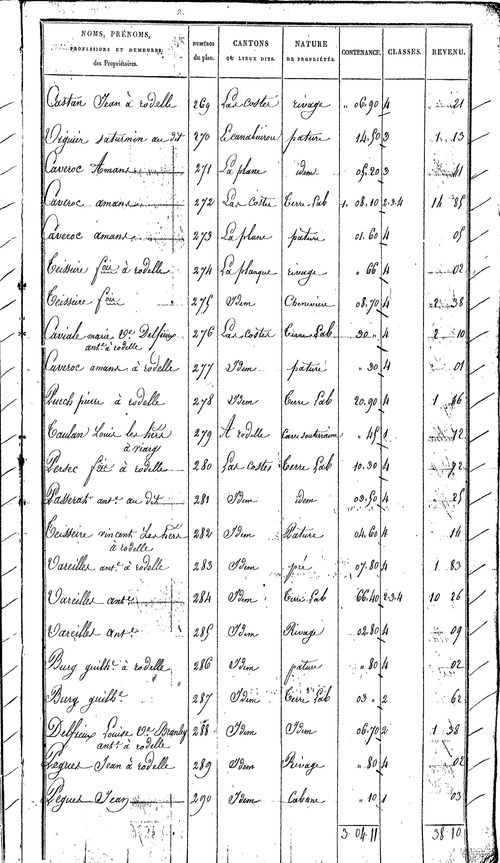 2.
NOMS, PRÉNOMS,
PROFESSIONS ET DEMEURES
des Propriétaires.
NUMÉROS
du plan.
CANTONS
OU LIEUX DITS.
NATURE
DE PROPRIÉTÉS.
CONTENANCE.
CLASSES.
REVENU.
Castan Jean à rodelle 269 Las Costes rivage " 06.90 4 21
Viguier Saturnin au dit 270 pature 14.50 3 1 13
Caveroc Amans 271 La plane idem 05.20 3 41
Caveroc amans 272 Las Costes Terre Lab 1. 08.10 2.3.4 14 85
Caveroc amans 273 La plane pature 01.60 4 05
Teisseire fois à rodelle 274 La planque rivage " 66 4 02
Teisseire fois 275 Idem Cheneviere 08.70 4 2 38
Caviale marie Ve Delfieux 276 Las Costes Terre Lab 30 " 4 2 10
ant.e à rodelle
Caveroc amans à rodelle 277 Idem pature " 30 4 01
Puech pierre à rodelle 278 Idem Terre Lab 20.90 4 1 86
Caulan Louis les hers 279 A rodelle Cave souterraine " 45 1 72
à
Persec fois à rodelle 280 Las Costes Terre Lab 10.30 4 72
Passerat ant.e au dit 281 Idem idem 03.50 4 25
Teisseire vincent Les hers 282 Idem Pature 04.60 4 14
à rodelle
Vareilles ant.e à rodelle 283 Idem pré 07.80 4 1 83
Vareilles ant.e 284 Idem Terre Lab 66.40 2.3.4 10 26
Vareilles ant.e 285 Idem Rivage 02.80 4 09
Burg guilh.e à rodelle 286 Idem pature " 80 4 02
Burg guilh.e 287 Idem Terre Lab 03 " 2 62
Delfieux Louise Ve 288 Idem Idem 06.70 2 1 38
ant.e à rodelle
Pegues Jean à rodelle 289 Idem Rivage " 80 4 02
Pegues Jean 290 Idem Cabane " 10 1 03
3 04 11 38 10